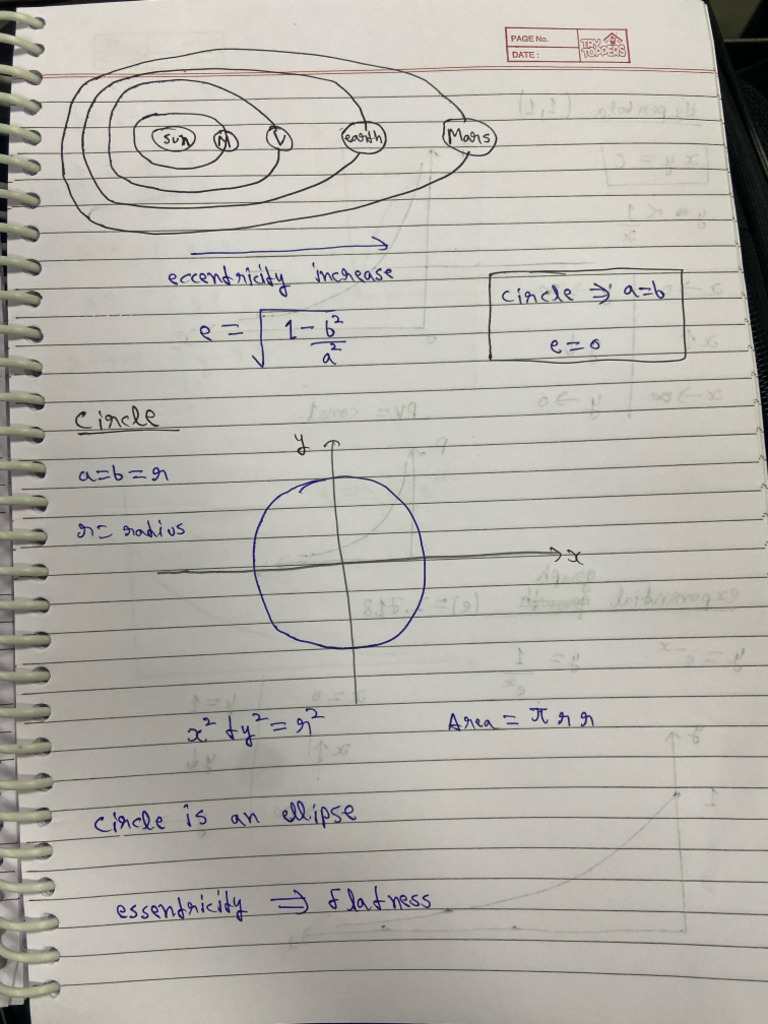 PAGE No.
DATE:
TRY TOPPERS
sun M V earth Mars
eccentricity increase
e = √(1 - b²/a²)
circle ⇒ a=b
e = 0
circle
y
a=b=r
r= radius
x
x² + y² = r²
Area = π r r
circle is an ellipse
essentricity ⇒ flatness